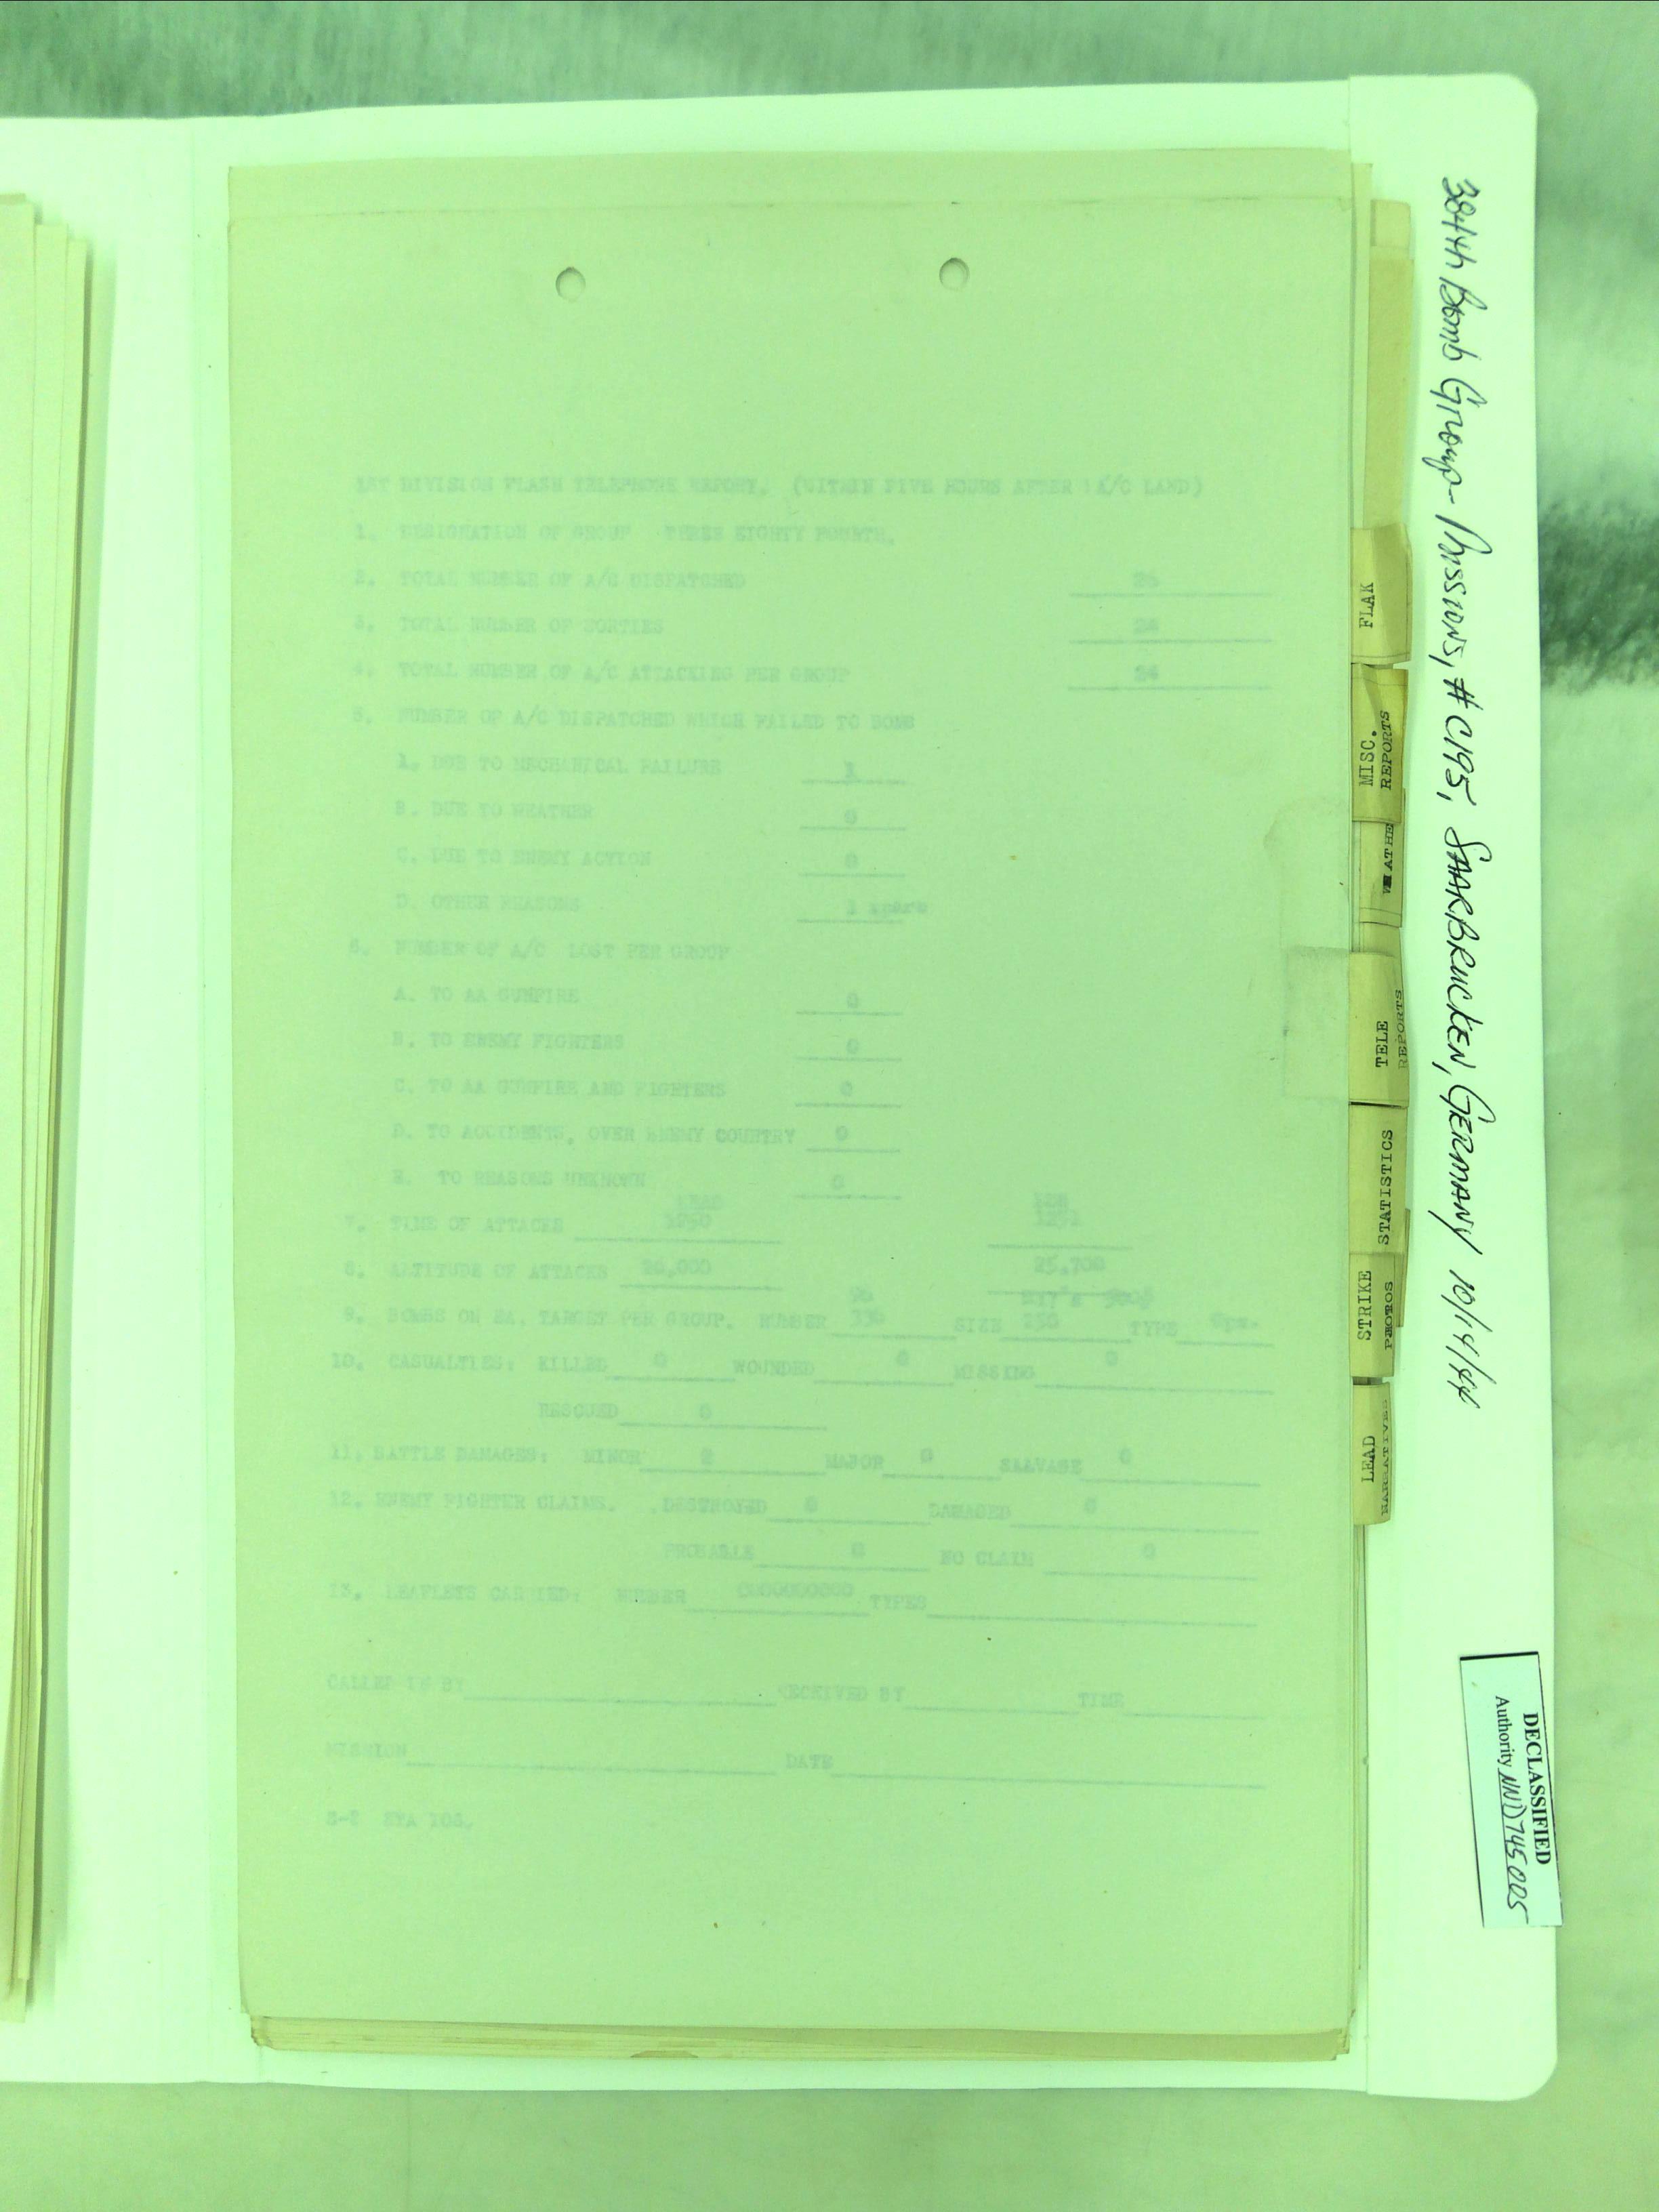 1ST DIVISION FLASH TELEPHONE REPORT. (WITHIN FIVE HOURS AFTER A/C LAND)
1. DESIGNATION OF GROUP THREE EIGHTY FOURTH.
2. TOTAL NUMBER OF A/C DISPATCHED
3. TOTAL NUMBER OF SORTIES
4. TOTAL NUMBER OF A/C ATTACKING PER GROUP 24
5. NUMBER OF A/C DISPATCHED WHICH FAILED TO BOMB
A. DUE TO MECHANICAL FAILURE 1
B. DUE TO WEATHER 0
C. DUE TO ENEMY ACTION 0
D. OTHER REASONS 1 spare
6. NUMBER OF A/C LOST PER GROUP
A. TO AA GUNFIRE 0
B. TO ENEMY FIGHTERS 0
C. TO AA GUNFIRE AND FIGHTERS 0
D. TO ACCIDENTS, OVER ENEMY COUNTRY 0
E. TO REASONS UNKNOWN 0
LEAD
7. TIME OF ATTACKS 1250
8. ALTITUDE OF ATTACKS 26,000 25,700
M17's 500#
9. BOMBS ON EA. TARGET PER GROUP. NUMBER 336 SIZE 250 TYPE Gps.
10. CASUALTIES: KILLED 0 WOUNDED 0 MISSING 0
RESCUED 0
11. BATTLE DAMAGES: MINOR 2 MAJOR 0 SALVAGE 0
12. ENEMY FIGHTER CLAIMS. DESTROYED 0 DAMAGED 0
PROBABLE 0 NO CLAIM 0
13. LEAFLETS CARRIED: NUMBER 0000000000 TYPES
CALLED IN BY RECEIVED BY TIME
MISSION DATE
S-2 ETA 106.
FLAK
MISC. REPORTS
TELE REPORTS
STATISTICS
STRIKE PHOTOS
LEAD NARRATIVES
384th Bomb Group- Missions, # C195, SAARBRUCKEN, GERMANY 10/14/44
DECLASSIFIED
Authority NND745005